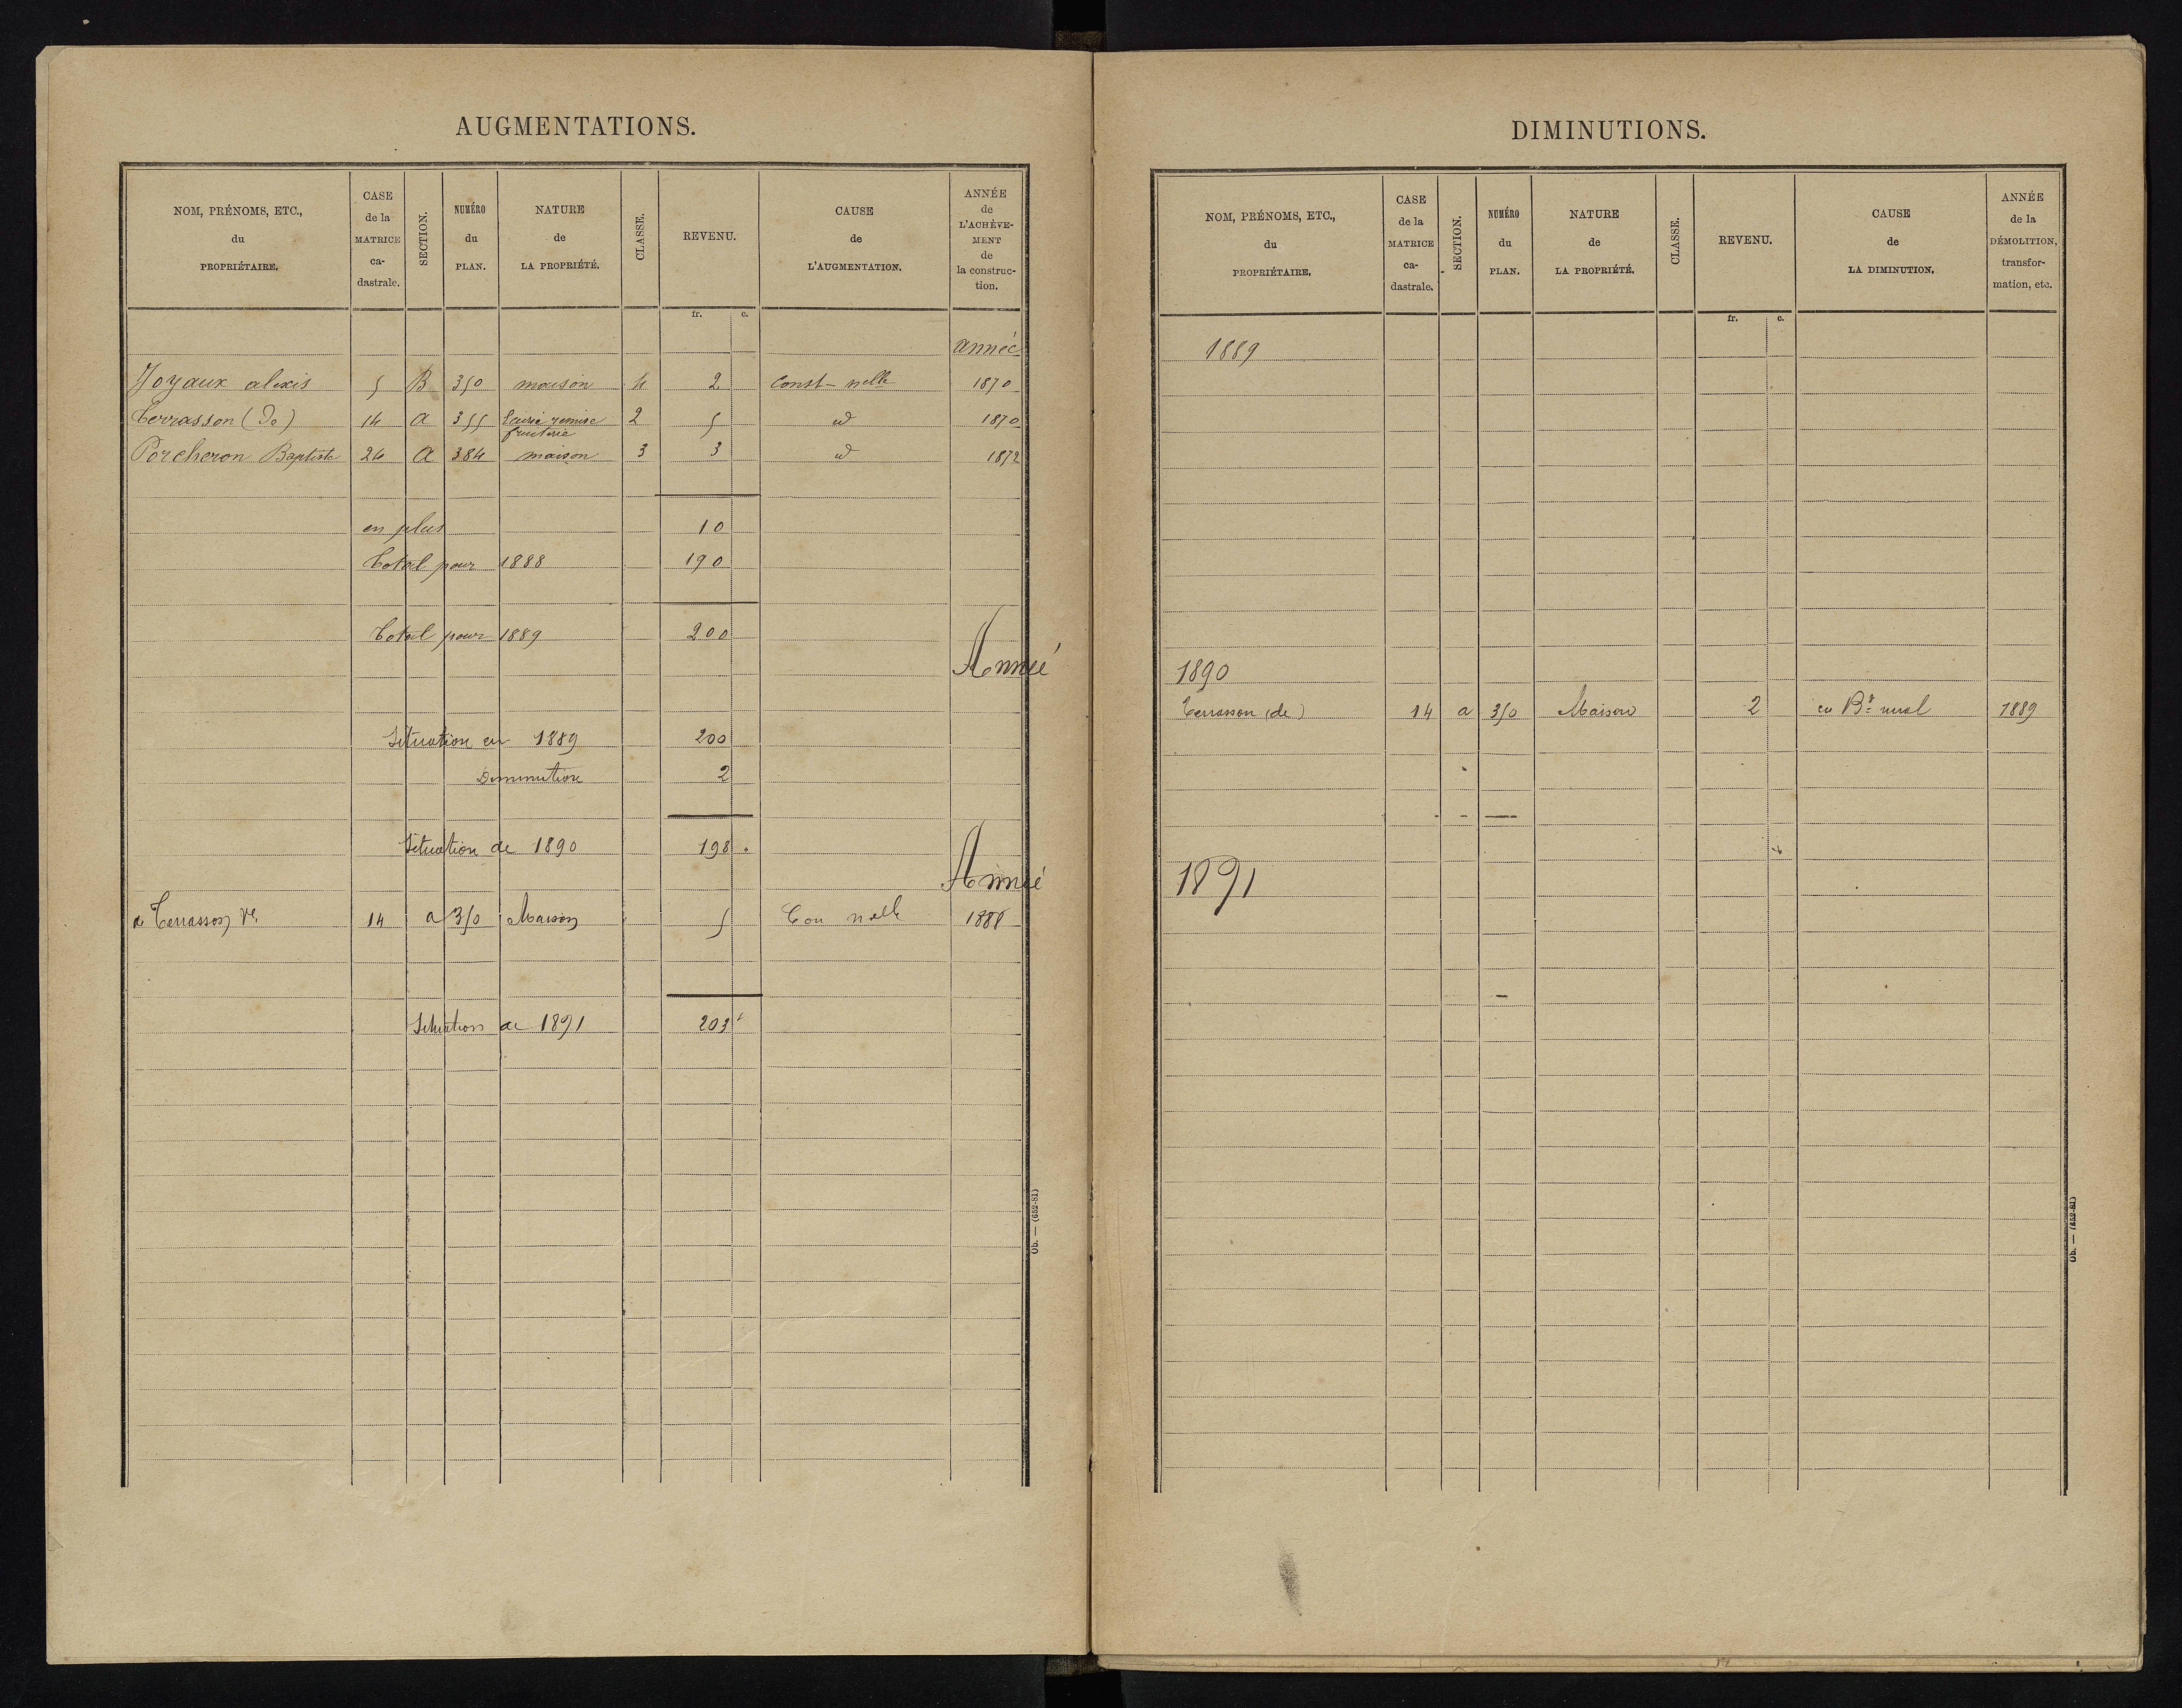 AUGMENTATIONS.
NOM, PRÉNOMS, ETC., du PROPRIÉTAIRE. | CASE de la MATRICE ca- dastrale. | SECTION. | NUMÉRO du PLAN. | NATURE de LA PROPRIÉTÉ. | CLASSE. | REVENU. | CAUSE de L'AUGMENTATION. | ANNÉE de L'ACHÈVE- MENT de la construc- tion.
fr. c.
année
Joyaux alexis 5 B 350 maison 4 2 Const- nelle 1870
Terrasson (De) 14 a 355 Ecurie remise 2 5 id 1870
fruiterie
Porcheron Baptiste 26 a 384 maison 3 3 id 1872
en plus 10
Total pour 1888 190
Total pour 1889 200
Année
Situation en 1889 200
Diminution 2
Situation de 1890 198
Année
de Terrasson Ve. 14 a 350 Maison 5 Con nelle 1888
Situation de 1891 203
Ob. — (652-81)
DIMINUTIONS.
NOM, PRÉNOMS, ETC., du PROPRIÉTAIRE. | CASE de la MATRICE ca- dastrale. | SECTION. | NUMÉRO du PLAN. | NATURE de LA PROPRIÉTÉ. | CLASSE. | REVENU. | CAUSE de LA DIMINUTION. | ANNÉE de la DÉMOLITION, transfor- mation, etc.
fr. c.
1889
1890
Terrasson (de) 14 a 350 Maison 2 en Bt rural 1889
1891
Ob. — (652-81)